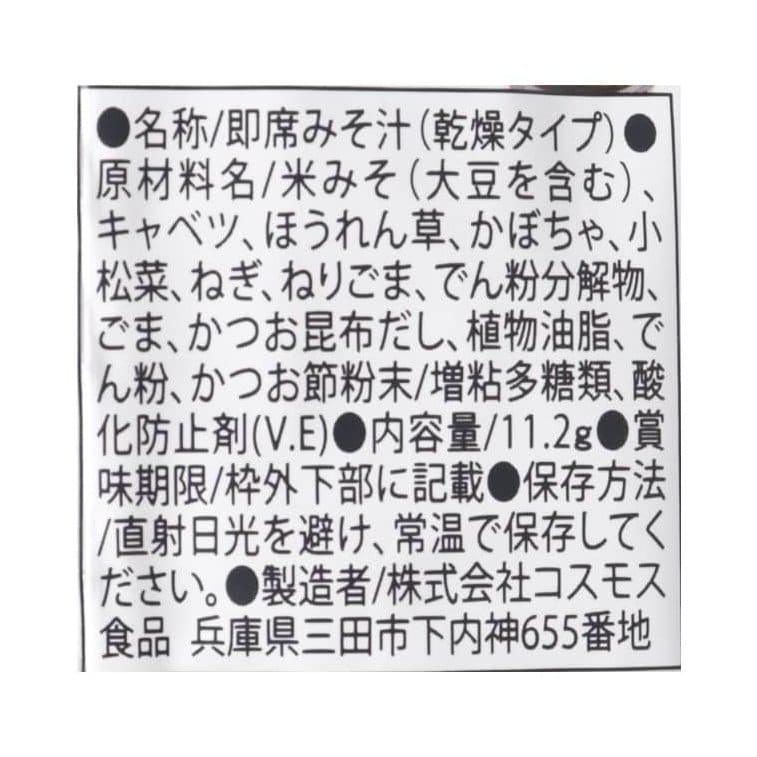 ●名称/即席みそ汁(乾燥タイプ)●
原材料名/米みそ(大豆を含む)、
キャベツ、ほうれん草、かぼちゃ、小
松菜、ねぎ、ねりごま、でん粉分解物、
ごま、かつお昆布だし、植物油脂、で
ん粉、かつお節粉末/増粘多糖類、酸
化防止剤(V.E)●内容量/11.2g●賞
味期限/枠外下部に記載●保存方法
/直射日光を避け、常温で保存してく
ださい。●製造者/株式会社コスモス
食品 兵庫県三田市下内神655番地